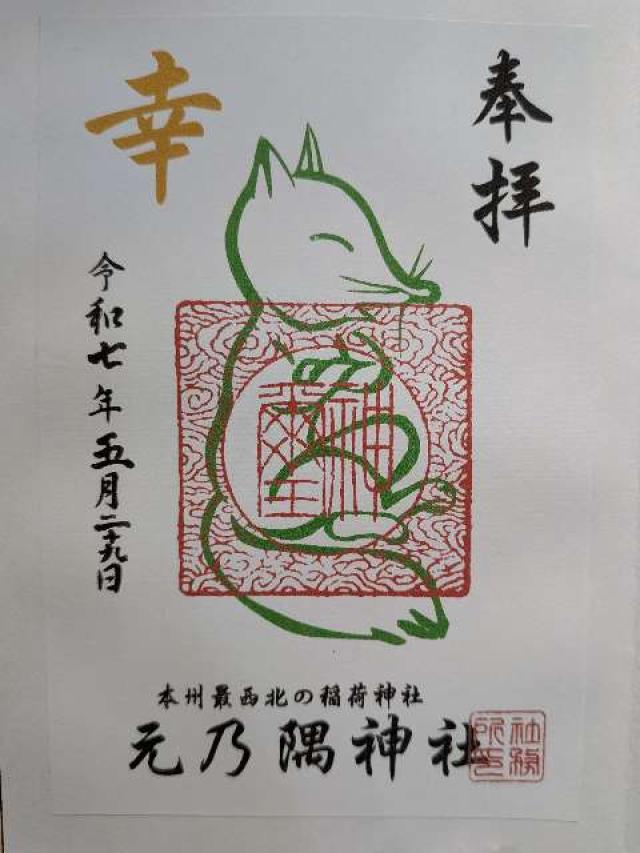 奉拝
幸
令和七年五月二十九日
神璽
本州最西北の稲荷神社
元乃隅神社
社務所印